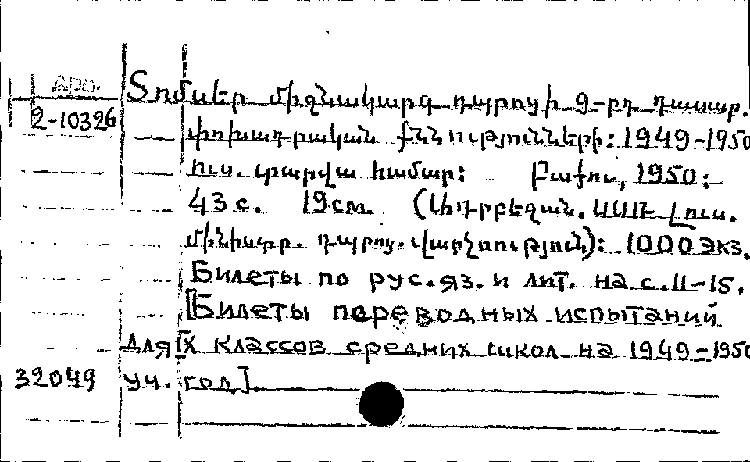 Арм.
Տոմսեր միջնակարգ դպրոցի 9-րդ դասար.
2-10326
փոխադրական քննությունների: 1949-1950
ուս. տարվա համար: Բաքու, 1950:
43 с. 19 см (Ադրբեջան. ՍՍՌ Լուս.
մինիստր. դպրոց. վարչություն): 1000 экз.
Билеты по рус. яз. и лит. на с. 11-15.
[Билеты переводных испытаний
для IX классов средних школ на 1949-1950
32049 уч. год].